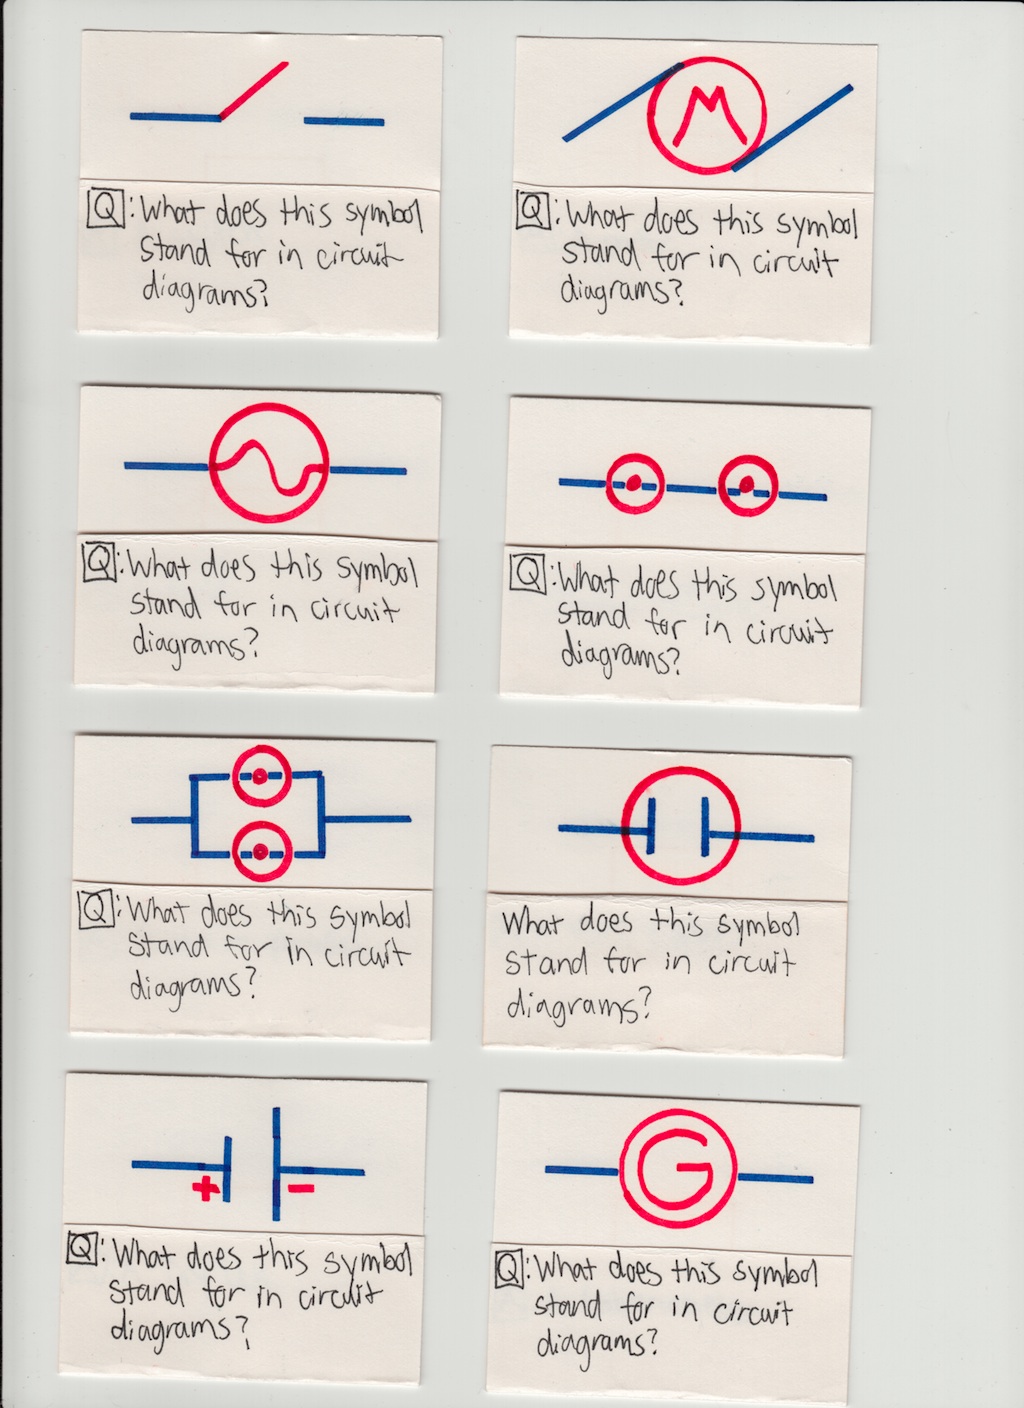 M
Q: What does this symbol
stand for in circuit
diagrams?
Q: What does this symbol
stand for in circuit
diagrams?
Q: What does this symbol
stand for in circuit
diagrams?
Q: What does this symbol
stand for in circuit
diagrams?
Q: What does this symbol
stand for in circuit
diagrams?
What does this symbol
stand for in circuit
diagrams?
+ -
Q: What does this symbol
stand for in circuit
diagrams?
G
Q: What does this symbol
stand for in circuit
diagrams?